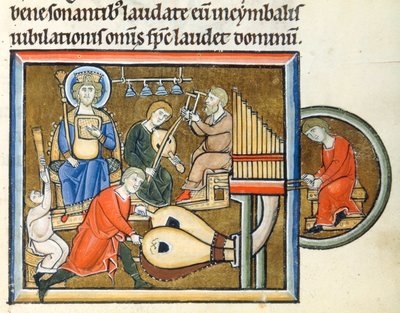 bene sonantib' laudate eū incymbalis
iubilationis om̄s sp̄c laudet dominū.